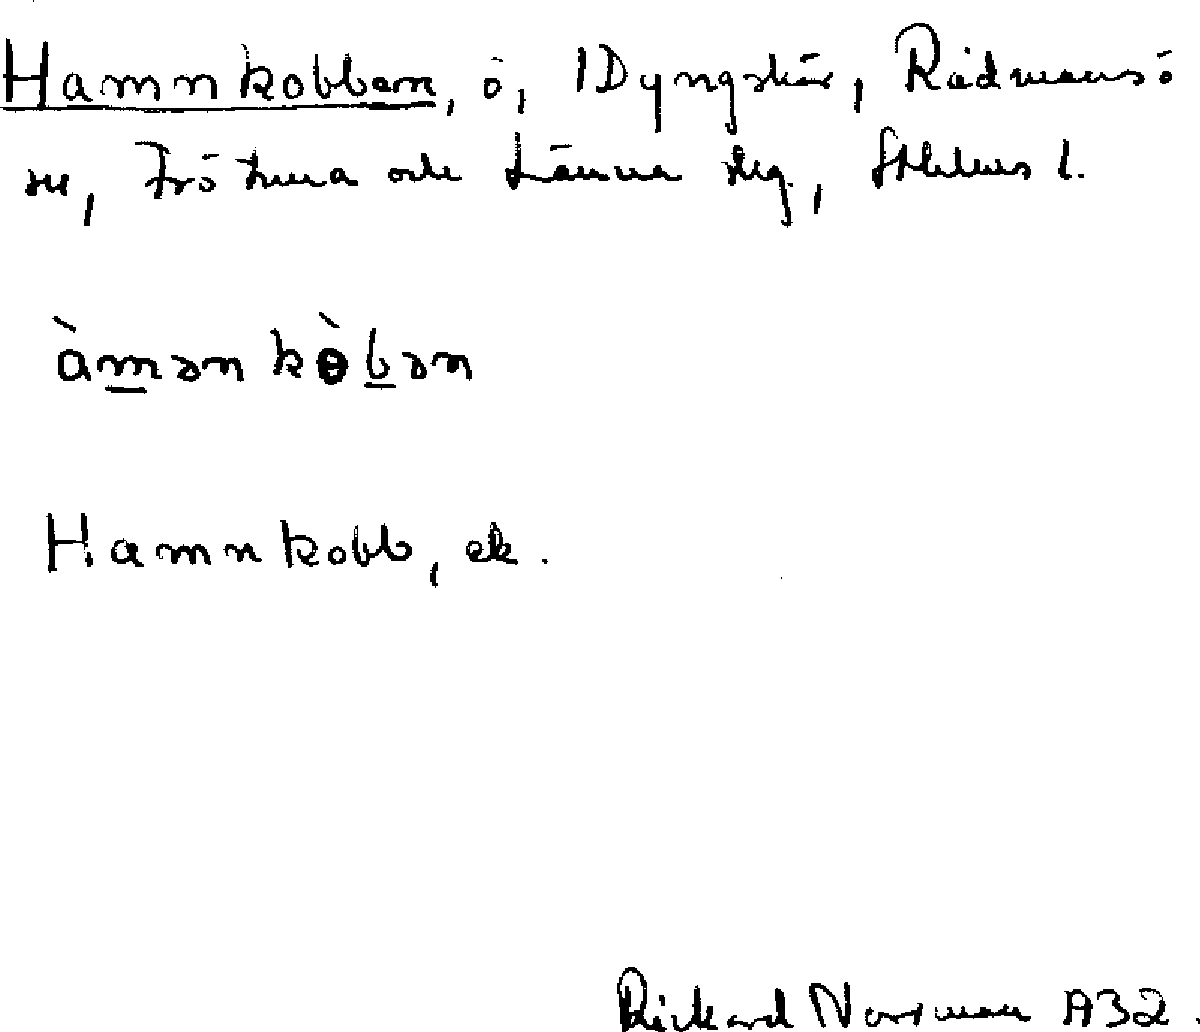 Hamnkobben, ö, 1Dyngskär, Rådmansö
sn, Frötuna och Länna slg., Sthlms l.
àmən kòbən
Hamnkobb, ek.
Rickard Norrman A32.